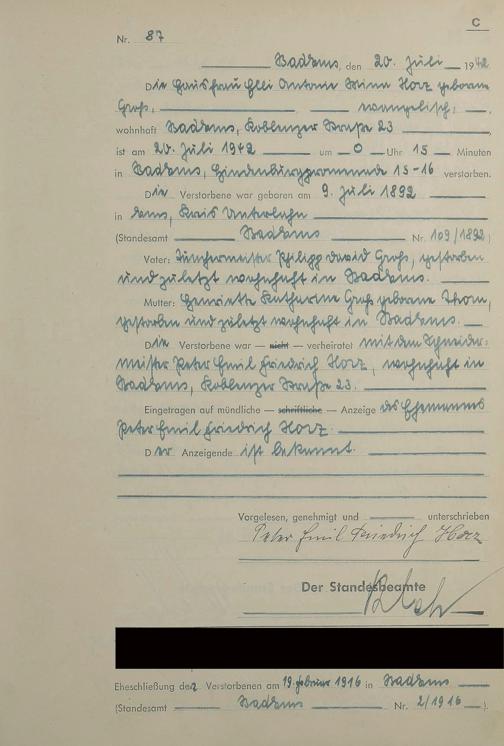 C
Nr. 87
Bad Ems, den 20. Juli 1942
Die Hausfrau Elli Antonie Minna Horz geborene
Groß, evangelisch,
wohnhaft Bad Ems, Koblenzer Straße 23
ist am 20. Juli 1942 um 0 Uhr 15 Minuten
in Bad Ems, Hindenburgpromenade 15-16 verstorben.
Die Verstorbene war geboren am 9. Juli 1892
in Ems, Kreis Unterlahn
(Standesamt Bad Ems Nr. 109/1892)
Vater: Tünchermeister Philipp David Groß, gestorben
und zuletzt wohnhaft in Bad Ems.
Mutter: Henriette Katharine Groß geborene Thorn,
gestorben und zuletzt wohnhaft in Bad Ems.
Die Verstorbene war — nicht — verheiratet mit dem Schneider-
meister Peter Emil Friedrich Horz, wohnhaft in
Bad Ems, Koblenzer Straße 23.
Eingetragen auf mündliche — schriftliche — Anzeige des Ehemannes
Peter Emil Friedrich Horz.
Der Anzeigende ist bekannt.
Vorgelesen, genehmigt und unterschrieben
Peter Emil Friedrich Horz
Der Standesbeamte
Eheschließung der Verstorbenen am 19. Februar 1916 in Bad Ems
(Standesamt Bad Ems Nr. 2/1916).